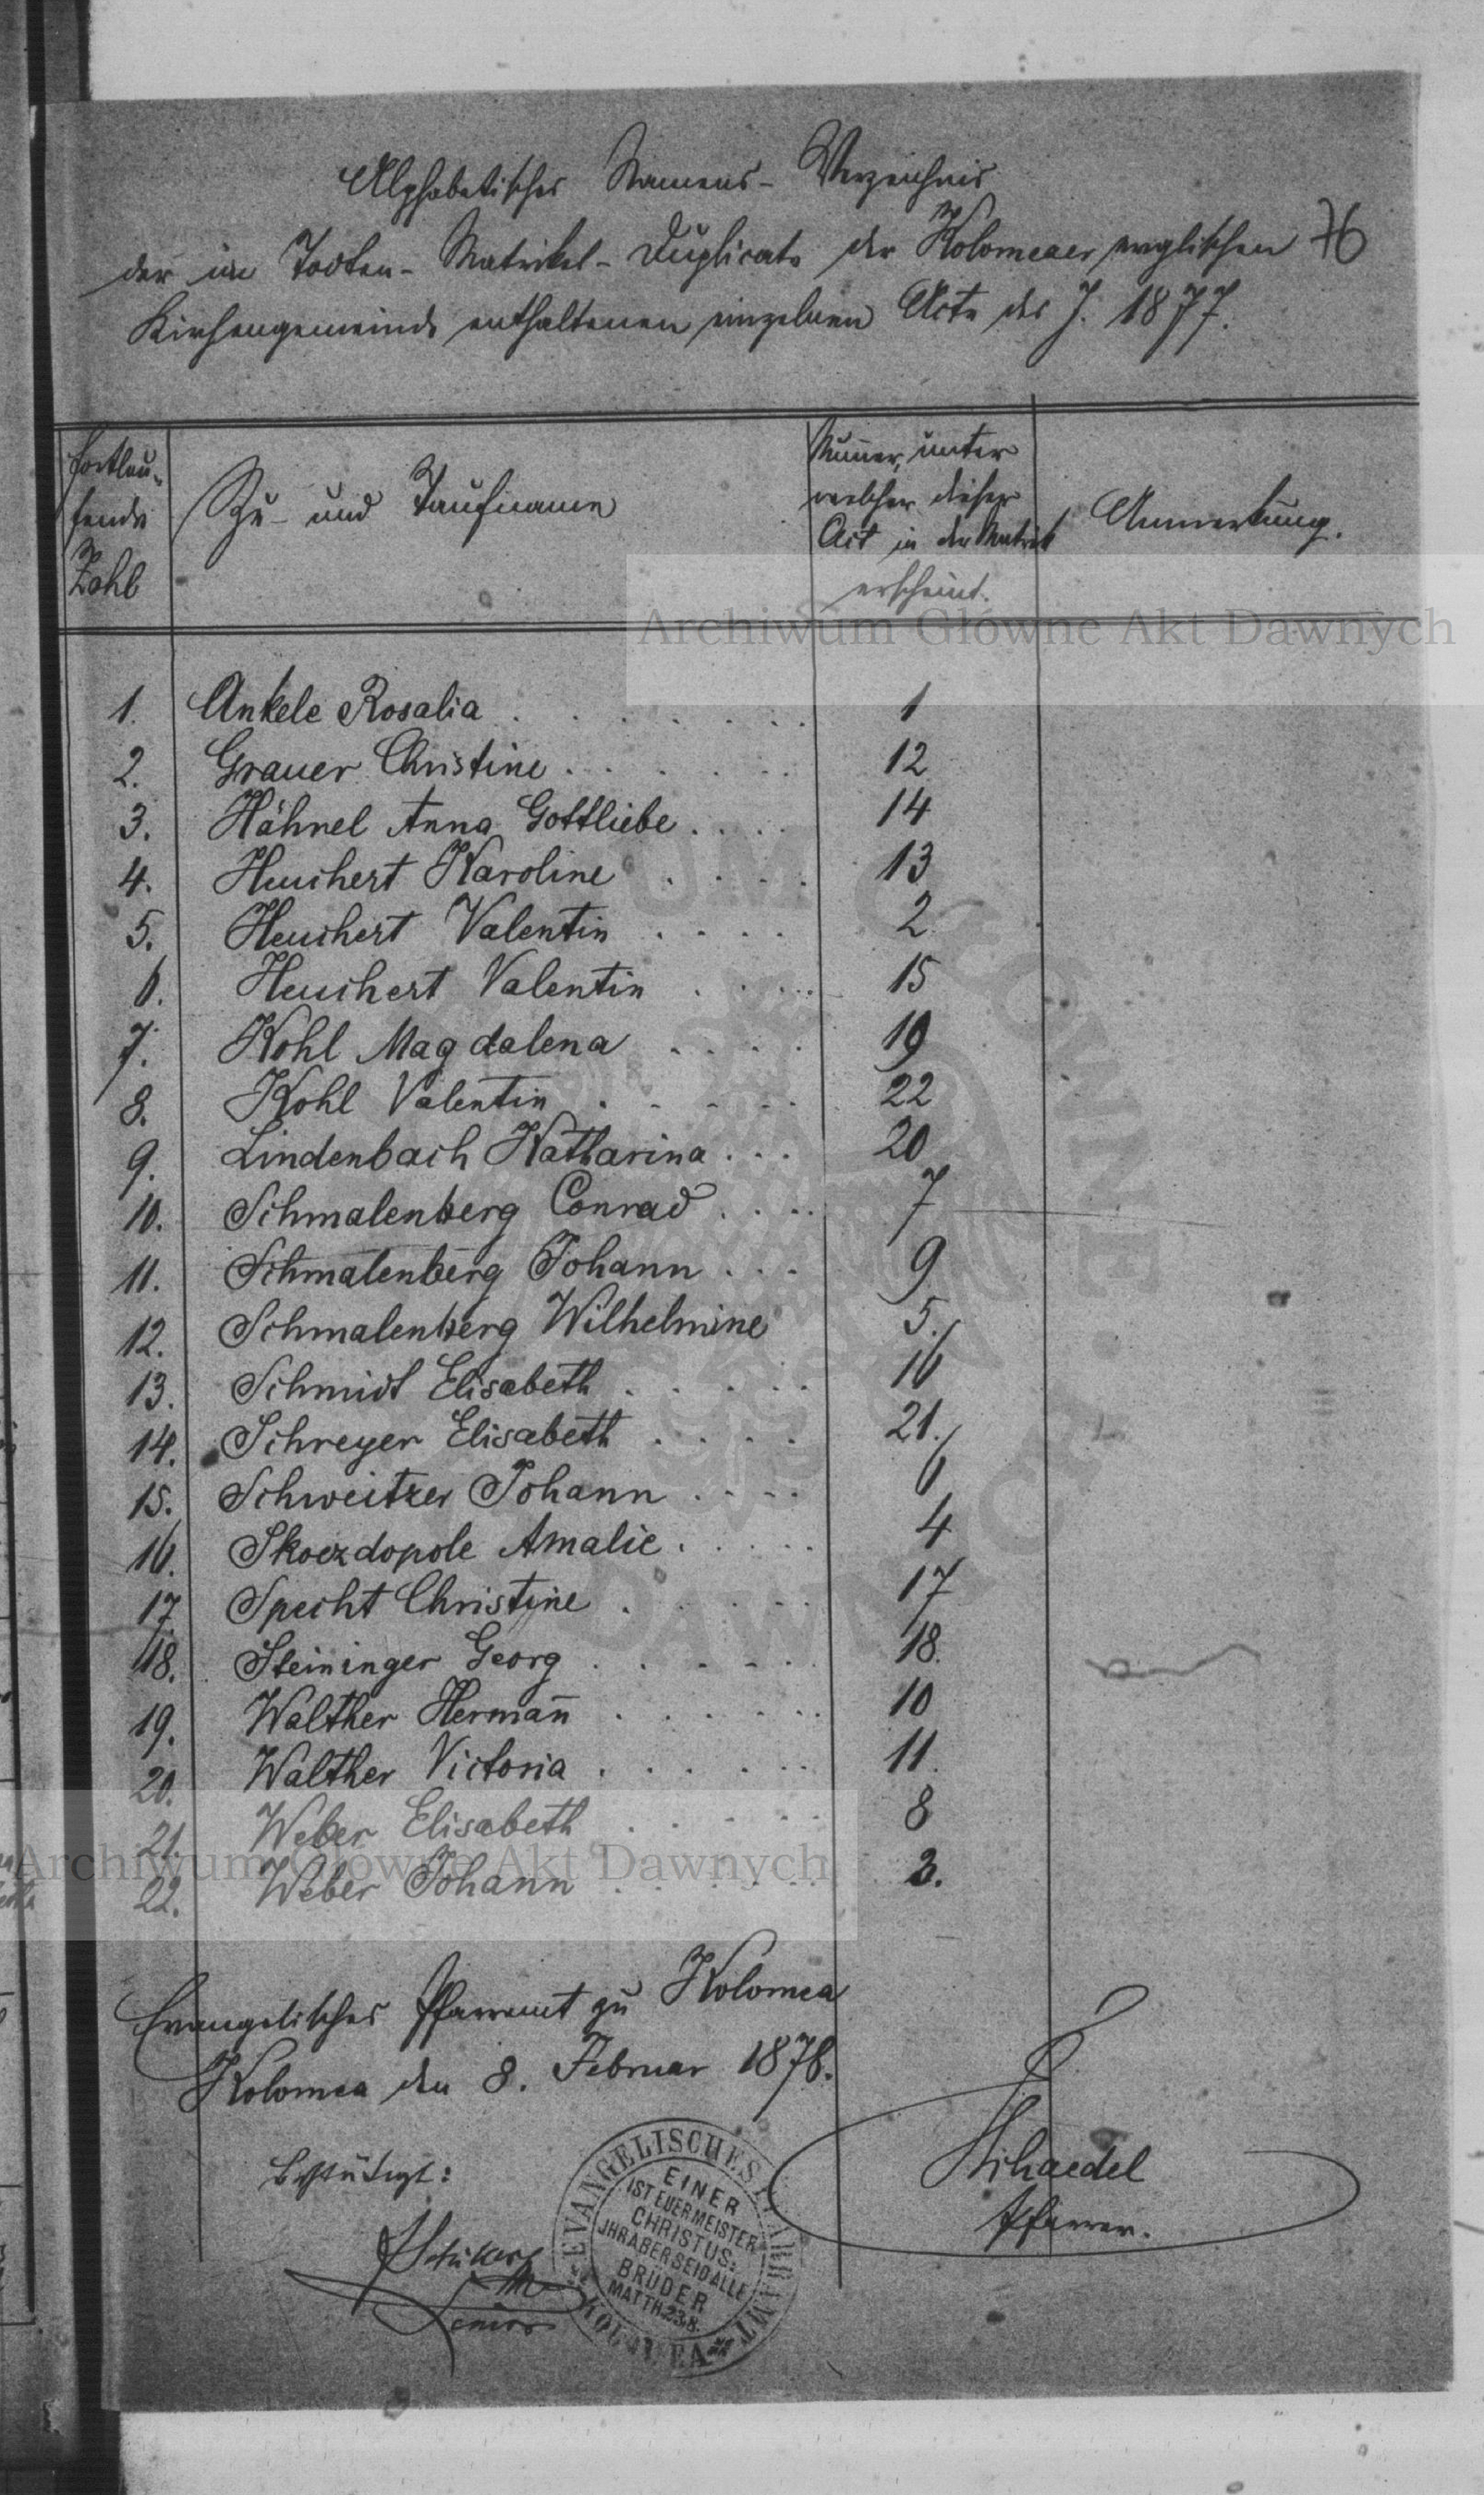 Alphabetisches Namens-Verzeichnis
der im Todten-Matrikel-Duplicate der Kolomeaer evnglischen 76
Kirchengemeinde enthaltenen einzelnen Acte des J. 1877.
Fortlau-
fende
Zahl
Zu- und Taufname
Num̄er, unter
welcher dieser
Act in der Matrik
erscheint.
Anmerkung.
1. Ankele Rosalia . . . . . . . 1
2. Grauer Christine . . . . . . 12
3. Hähnel Anna Gottliebe . . . . 14
4. Heuchert Karoline . . . . 13
5. Heuchert Valentin . . . . 2
6. Heuchert Valentin . . . . 15
7. Kohl Magdalena . . . . 19
8. Kohl Valentin . . . . . 22
9. Lindenbach Katharina . . . 20
10. Schmalenberg Conrad . . . . 7
11. Schmalenberg Johann . . . 9
12. Schmalenberg Wilhelmine 5.
13. Schmidt Elisabeth . . . . . 16
14. Schreyer Elisabeth . . . . 21.
15. Schweitzer Johann . . . . 6
16. Skoezdopole Amalie . . . . . 4
17. Specht Christine . . . . . 17
18. Steininger Georg . . . . . 18.
19. Walther Herman̄ . . . . . . 10
20. Walther Victoria . . . . . . 11.
21. Weber Elisabeth . . . . . 8
22. Weber Johann . . . . . . 3.
Evangelisches Pfarramt zu Kolomea
Kolomea den 8. Februar 1878.
Bestätigt:
Senior
Schaedel
Pfarrer.
EVANGELISCHES PFARRAMT
KOLOMEA
EINER
IST EUER MEISTER
CHRISTUS:
JHR ABER SEID ALLE
BRÜDER
MATTH. 23.8.
Archiwum Główne Akt Dawnych
Archiwum Główne Akt Dawnych